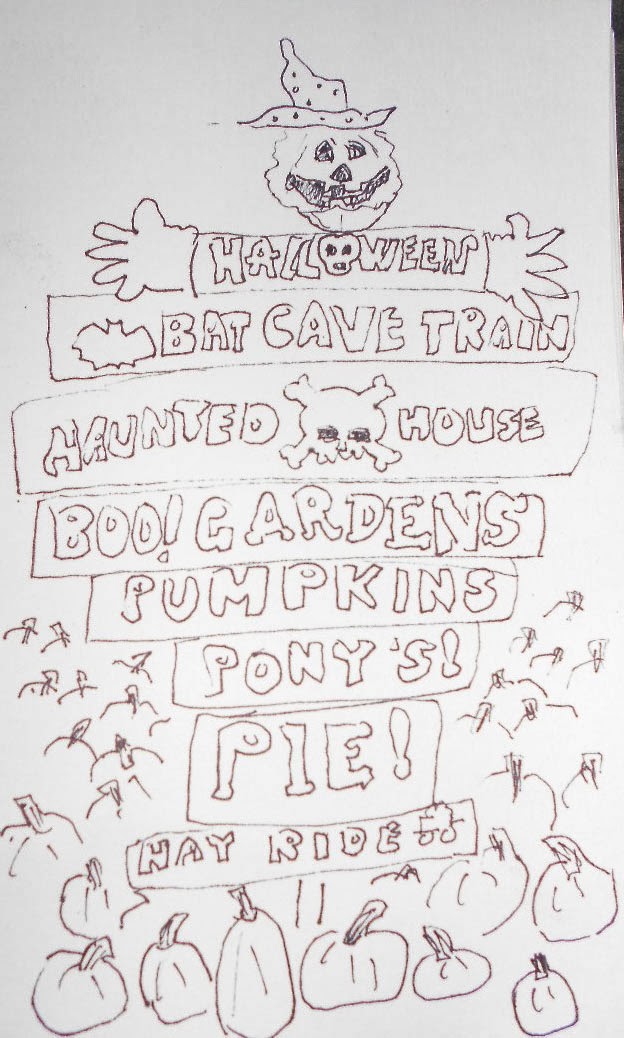 HALLOWEEN
BAT CAVE TRAIN
HAUNTED HOUSE
BOO! GARDENS
PUMPKINS
PONY'S!
PIE!
HAY RIDE